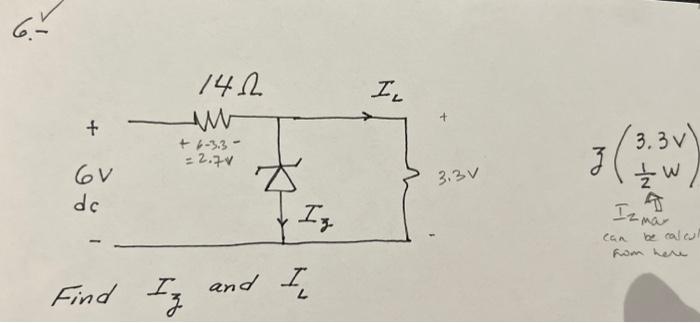 6.-
14 Ω
I_L
+
+
+ 6-3.3 -
= 2.7V
6V
dc
3.3V
I_z
-
-
z (3.3V
1/2 W)
I_z max
can be calcul
from here
Find I_z and I_L